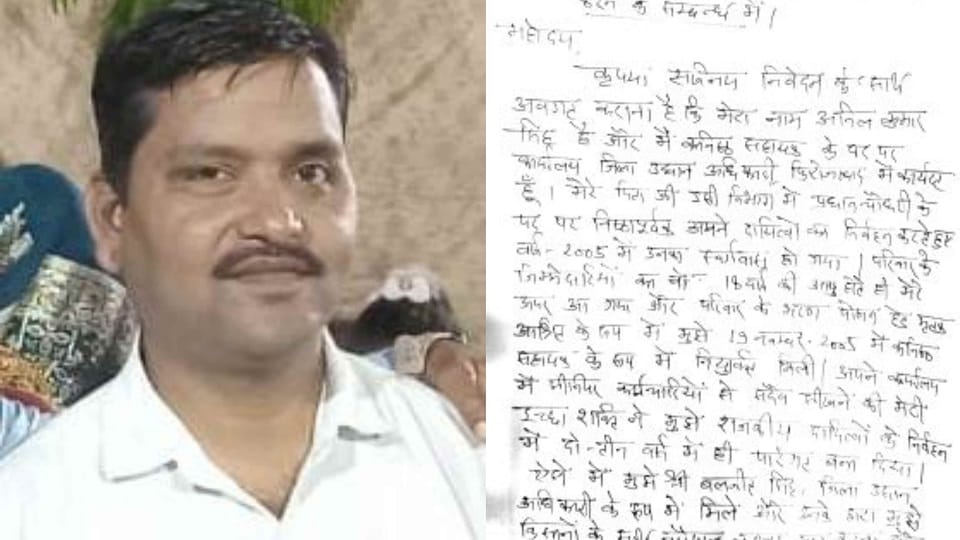 करने के सम्बन्ध में।
महोदय,
कृपया सविनय निवेदन के साथ
अवगत कराना है कि मेरा नाम अनिल कुमार
सिंह है और मैं कनिष्ठ सहायक के पद पर
कार्यालय जिला उद्यान अधिकारी फिरोजाबाद में कार्यरत
हूँ। मेरे पिता जी उसी विभाग में प्रधान चौधरी के
पद पर निष्ठापूर्वक अपने दायित्वों का निर्वहन करते हुए
वर्ष- 2005 में उनका स्वर्गवास हो गया। परिवार के
जिम्मेदारियों का बोझ 18 वर्ष की आयु होते ही मेरे
ऊपर आ गया और परिवार के भरण पोषण हेतु मृतक
आश्रित के रूप में मुझे 19 नवम्बर- 2005 में कनिष्ठ
सहायक के रूप में नियुक्ति मिली। अपने कार्यालय
में सीनियर कर्मचारियों से सदैव सीखने की मेरी
इच्छा शक्ति ने मुझे राजकीय दायित्वों के निर्वहन
में दो-तीन वर्ष में ही पारंगत बना दिया।
ऐसे में मुझे श्री बलजीत सिंह, जिला उद्यान
अधिकारी के रूप में मिले और उनके द्वारा मुझे
किसानों के